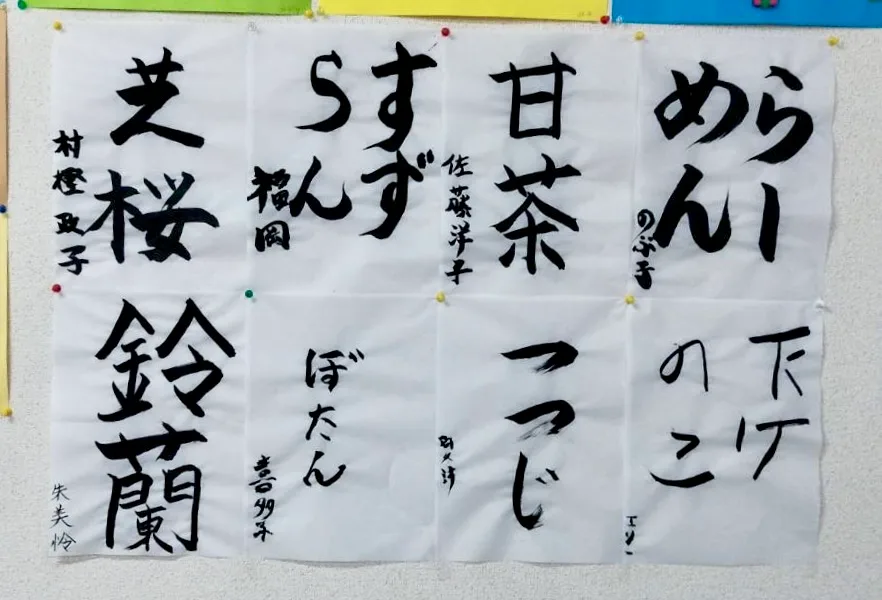 らー
めん
のぶ子
甘茶
佐藤洋子
すず
らん
福岡
芝桜
村樫政子
タケ
のこ
つつじ
ぼたん
喜多子
鈴蘭
朱美怜